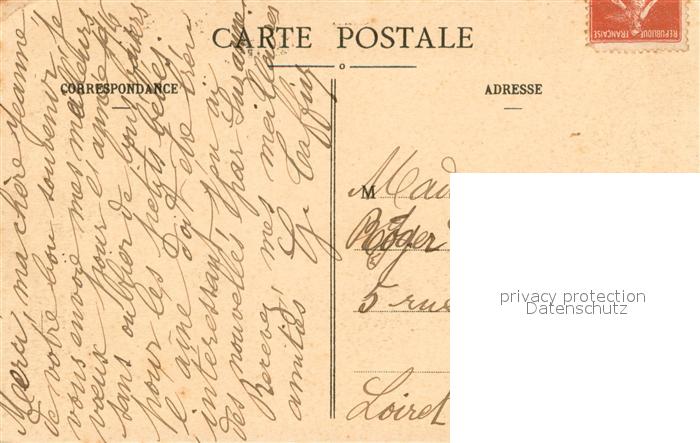 CARTE POSTALE
CORRESPONDANCE
ADRESSE
REPUBLIQUE FRANÇAISE
Merci, ma chère Jeanne
de votre bon souvenir. Je
vous envoie mes meilleurs
vœux pour l'année
sans oublier de gros baisers
pour les petits gâtés.
L'aîné doit être très
interessant. J'ai
des nouvelles par Suzanne
Recevez mes meilleures
amitiés.
M Mad
Roger
5 rue
Loiret
privacy protection
Datenschutz